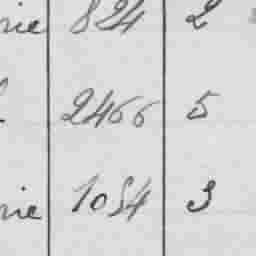 rie 824 2
2466 5
rie 1054 3